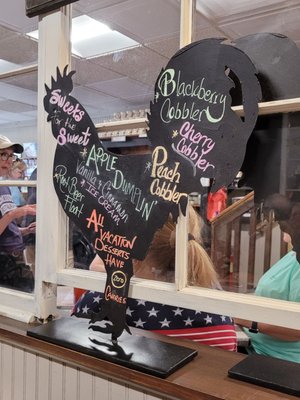 Sweets
for the
Sweet
Apple
Dumplin'
Vanilla + Cinnamon
+ ICE CREAM
Root Beer
Float
Blackberry
Cobbler
Cherry
Cobbler
Peach
Cobbler
All
VACATION
Desserts
HAVE
Zero
CALORIES